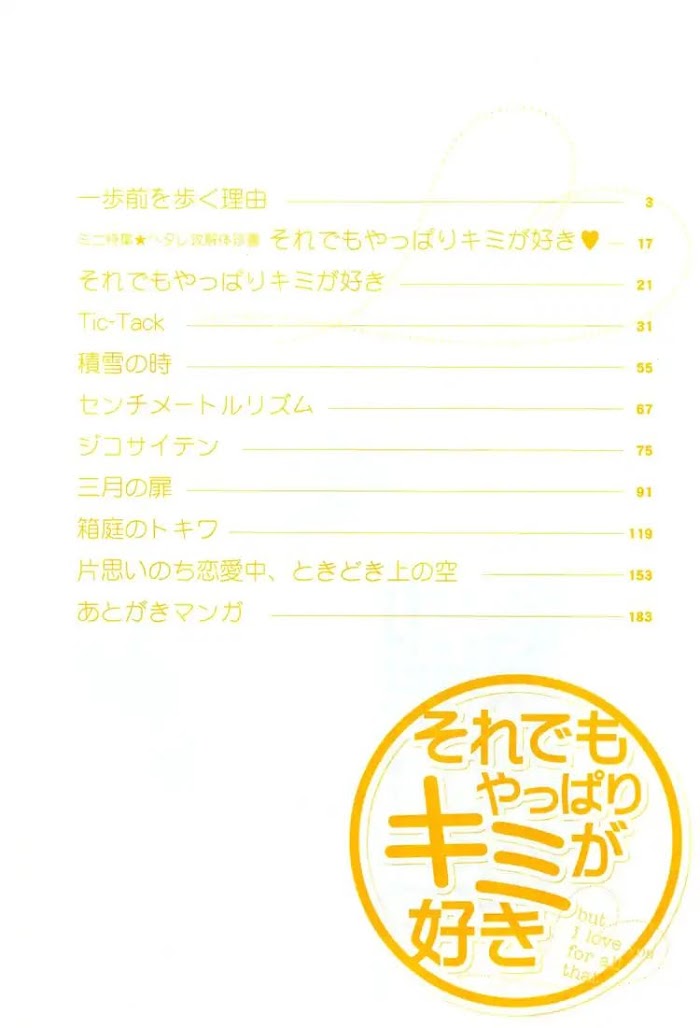 一歩前を歩く理由 3
ミニ特集★ヘタレ攻解体診書 それでもやっぱりキミが好き♥ 17
それでもやっぱりキミが好き 21
Tic-Tack 31
積雪の時 55
センチメートルリズム 67
ジコサイテン 75
三月の扉 91
箱庭のトキワ 119
片思いのち恋愛中、ときどき上の空 153
あとがきマンガ 183
それでも
やっぱり
キミが
好き
but
I love you
for all
that